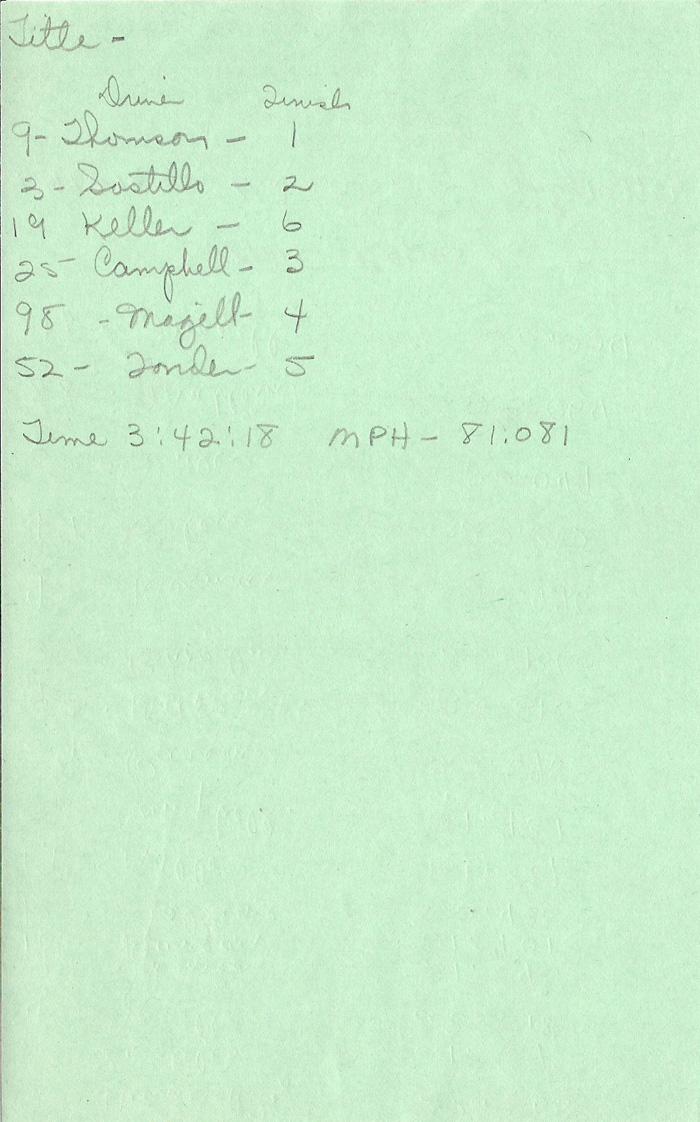 Title -
Driver Finish
9- Thomson - 1
3- Sostillo - 2
19 Keller - 6
25- Campbell - 3
98 - Magill - 4
52 - Zonder - 5
Time 3:42:18 MPH - 81.081